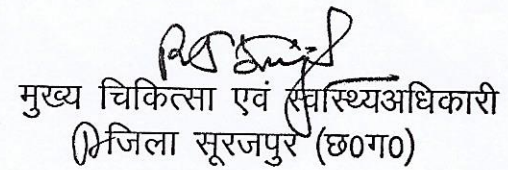 मुख्य चिकित्सा एवं स्वास्थ्यअधिकारी
जिला सूरजपुर (छ0ग0)